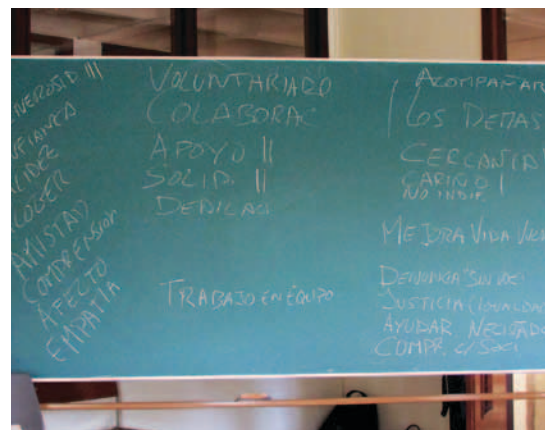 NEROSID III
NFIANCA
LIDEZ
COGER
AMISTAD
COMPRENSIÓN
AFECTO
EMPATÍA
VOLUNTARIADO
COLABORAC
APOYO II
SOLID. II
DEDICAC
TRABAJO EN EQUIPO
ACOMPAÑAR
LOS DEMAS
CERCANIA
CARIÑO I
NO INDIF
MEJORA VIDA
DENUNCIA SIN
JUSTICIA (IGUALDAD
AYUDAR NECITADO
COMPR. c/ SOCI